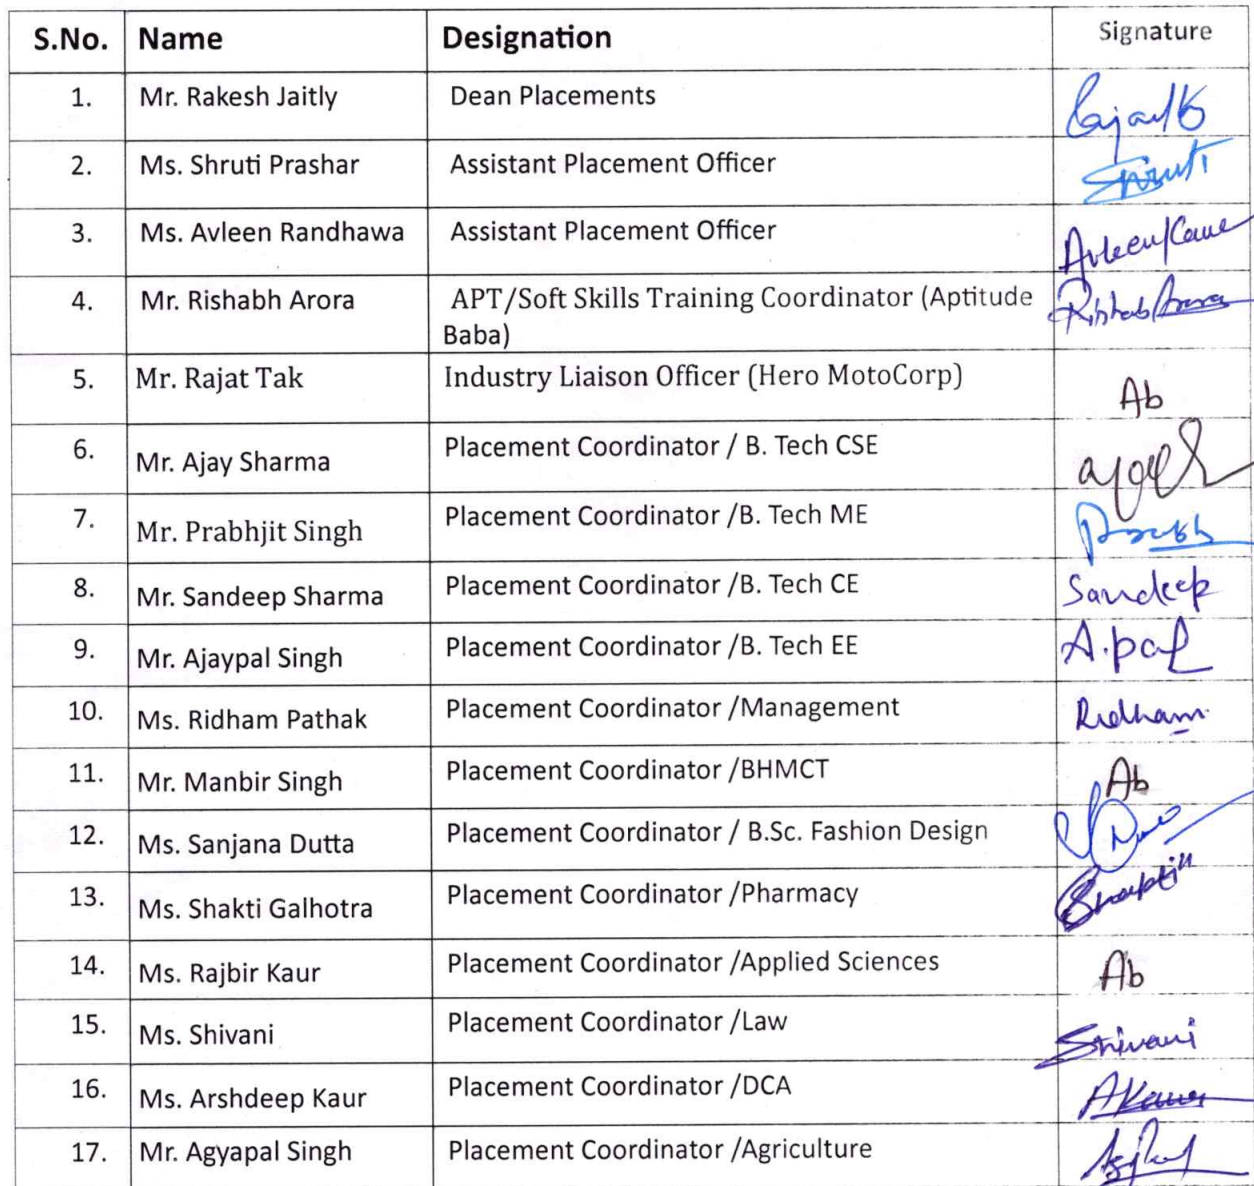 S.No. Name Designation Signature
1. Mr. Rakesh Jaitly Dean Placements
2. Ms. Shruti Prashar Assistant Placement Officer Shruti
3. Ms. Avleen Randhawa Assistant Placement Officer Avleen Kaur
4. Mr. Rishabh Arora APT/Soft Skills Training Coordinator (Aptitude Rishab Arora
Baba)
5. Mr. Rajat Tak Industry Liaison Officer (Hero MotoCorp) Ab
6. Mr. Ajay Sharma Placement Coordinator / B. Tech CSE
7. Mr. Prabhjit Singh Placement Coordinator /B. Tech ME
8. Mr. Sandeep Sharma Placement Coordinator /B. Tech CE Sandeep
9. Mr. Ajaypal Singh Placement Coordinator /B. Tech EE A.pal
10. Ms. Ridham Pathak Placement Coordinator /Management Ridham
11. Mr. Manbir Singh Placement Coordinator /BHMCT Ab
12. Ms. Sanjana Dutta Placement Coordinator / B.Sc. Fashion Design
13. Ms. Shakti Galhotra Placement Coordinator /Pharmacy
14. Ms. Rajbir Kaur Placement Coordinator /Applied Sciences Ab
15. Ms. Shivani Placement Coordinator /Law Shivani
16. Ms. Arshdeep Kaur Placement Coordinator /DCA AKaur
17. Mr. Agyapal Singh Placement Coordinator /Agriculture